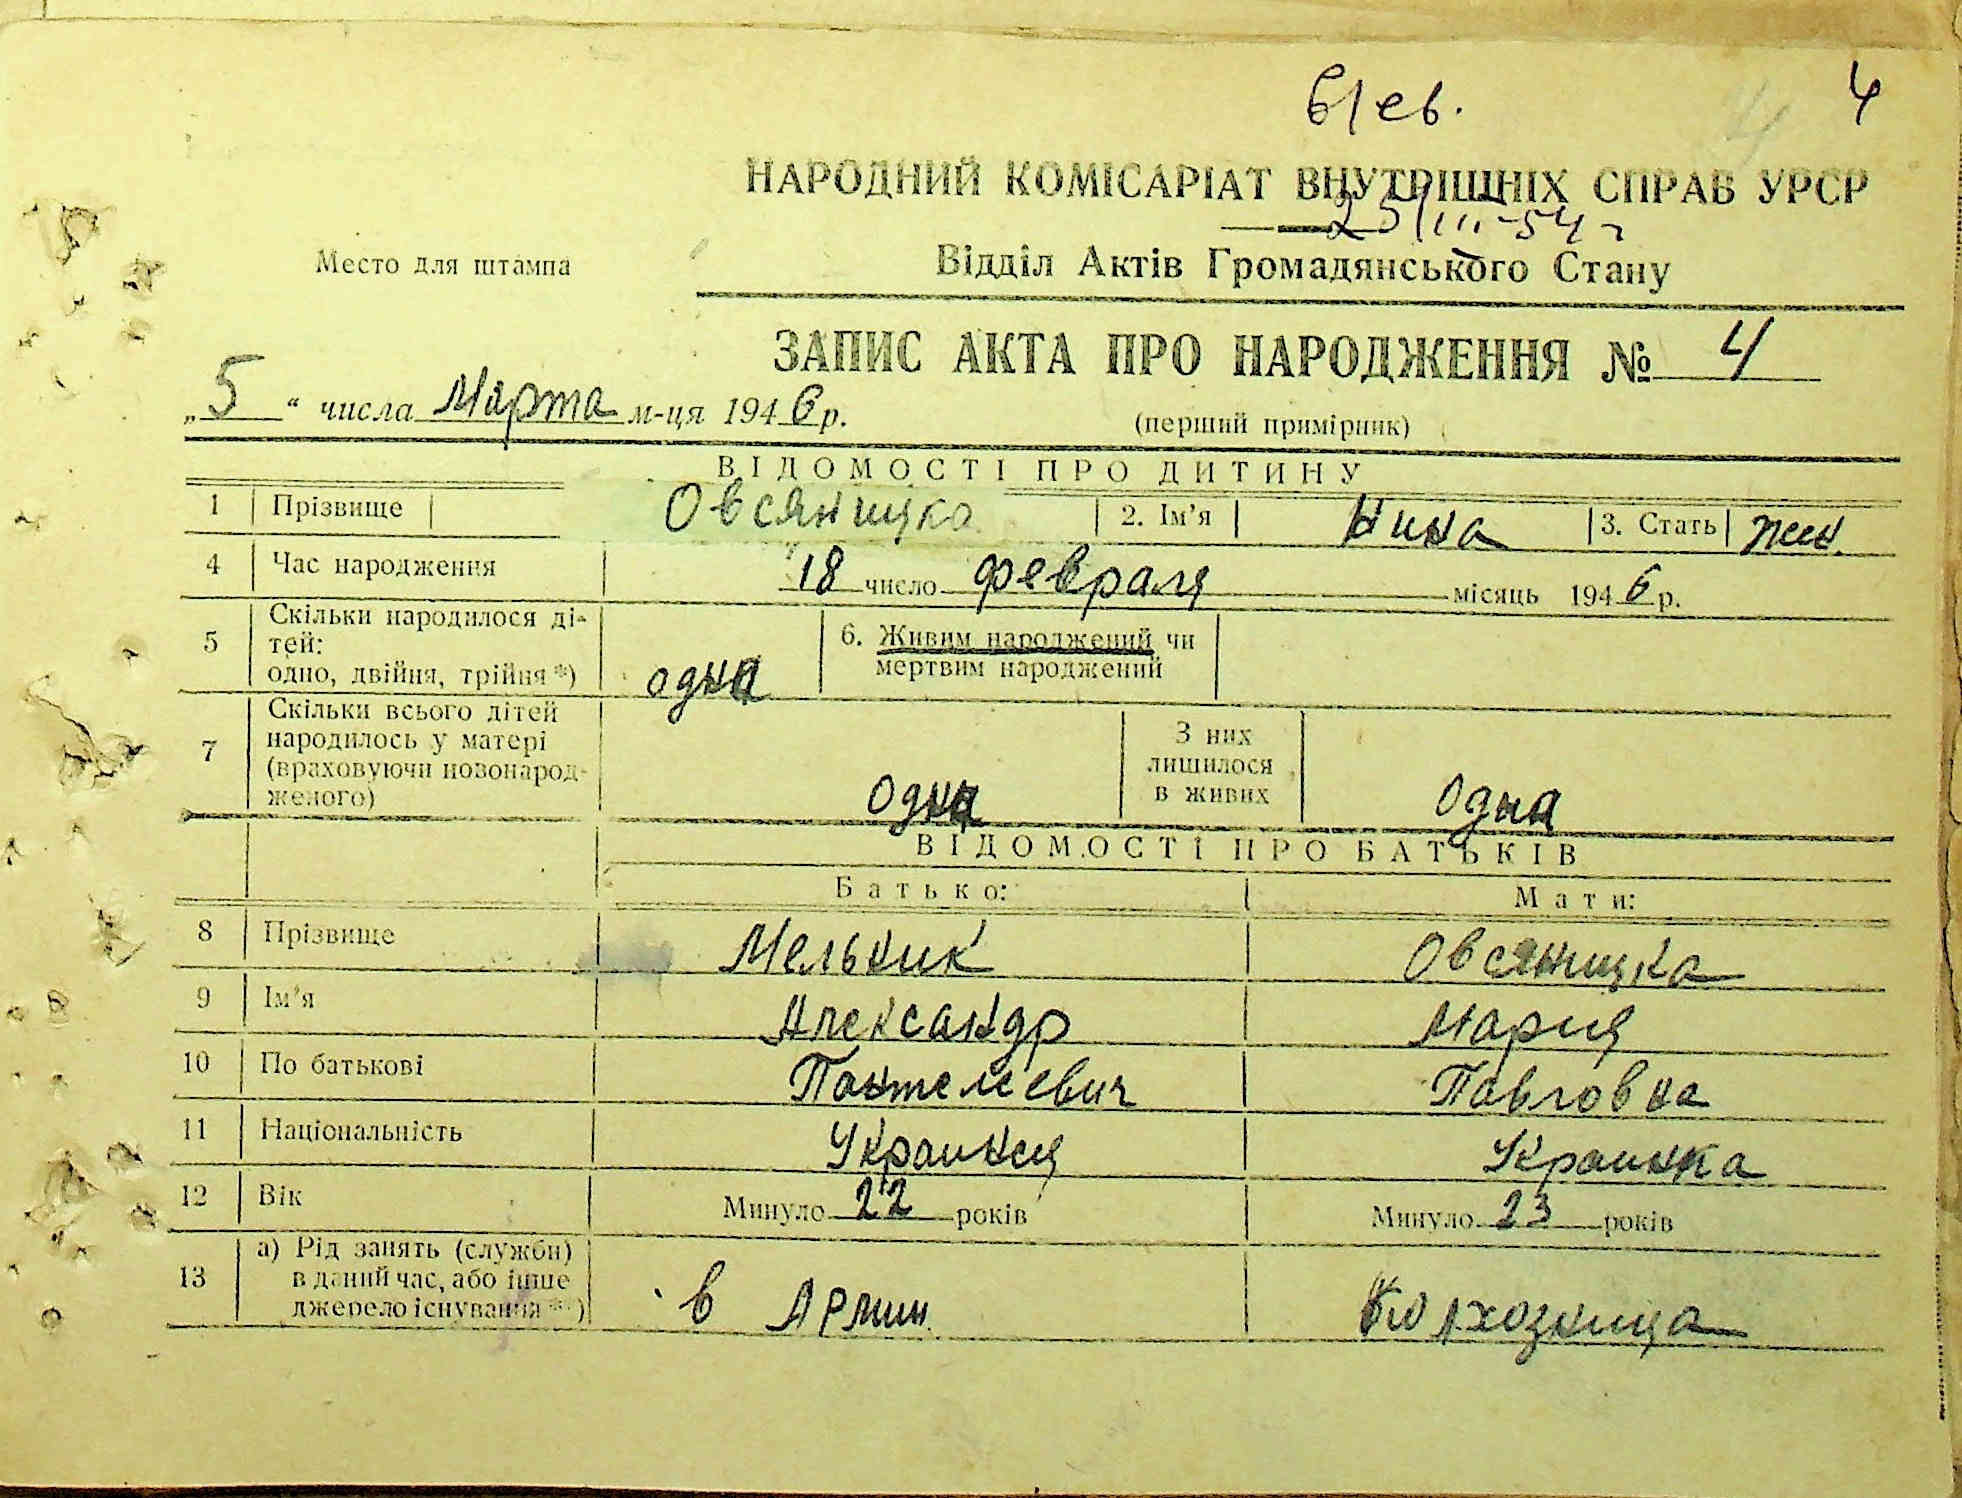 в/св. 4
НАРОДНИЙ КОМІСАРІАТ ВНУТРІШНІХ СПРАВ УРСР
25/III-54 г
Место для штампа
Відділ Актів Громадянського Стану
ЗАПИС АКТА ПРО НАРОДЖЕННЯ № 4
„5“ числа Марта м-ця 1946 р.
(перший примірник)
ВІДОМОСТІ ПРО ДИТИНУ
1 Прізвище Овсяницка 2. Ім'я Нина 3. Стать жен.
4 Час народження 18 число февраля місяць 1946 р.
5 Скільки народилося ді-
тей:
одно, двійня, трійня *) одна
6. Живим народжений чи
мертвим народжений
7 Скільки всього дітей
народилось у матері
(враховуючи новонарод-
женого) одна
З них
лишилося
в живих одна
ВІДОМОСТІ ПРО БАТЬКІВ
Батько: Мати:
8 Прізвище Мельник Овсяницка
9 Ім'я Александр Мария
10 По батькові Пантелеевич Павловна
11 Національність Украинец Украинка
12 Вік Минуло 22 років Минуло 23 років
13 а) Рід занять (служби)
в даний час, або інше
джерело існування **) в Армии Колхозница